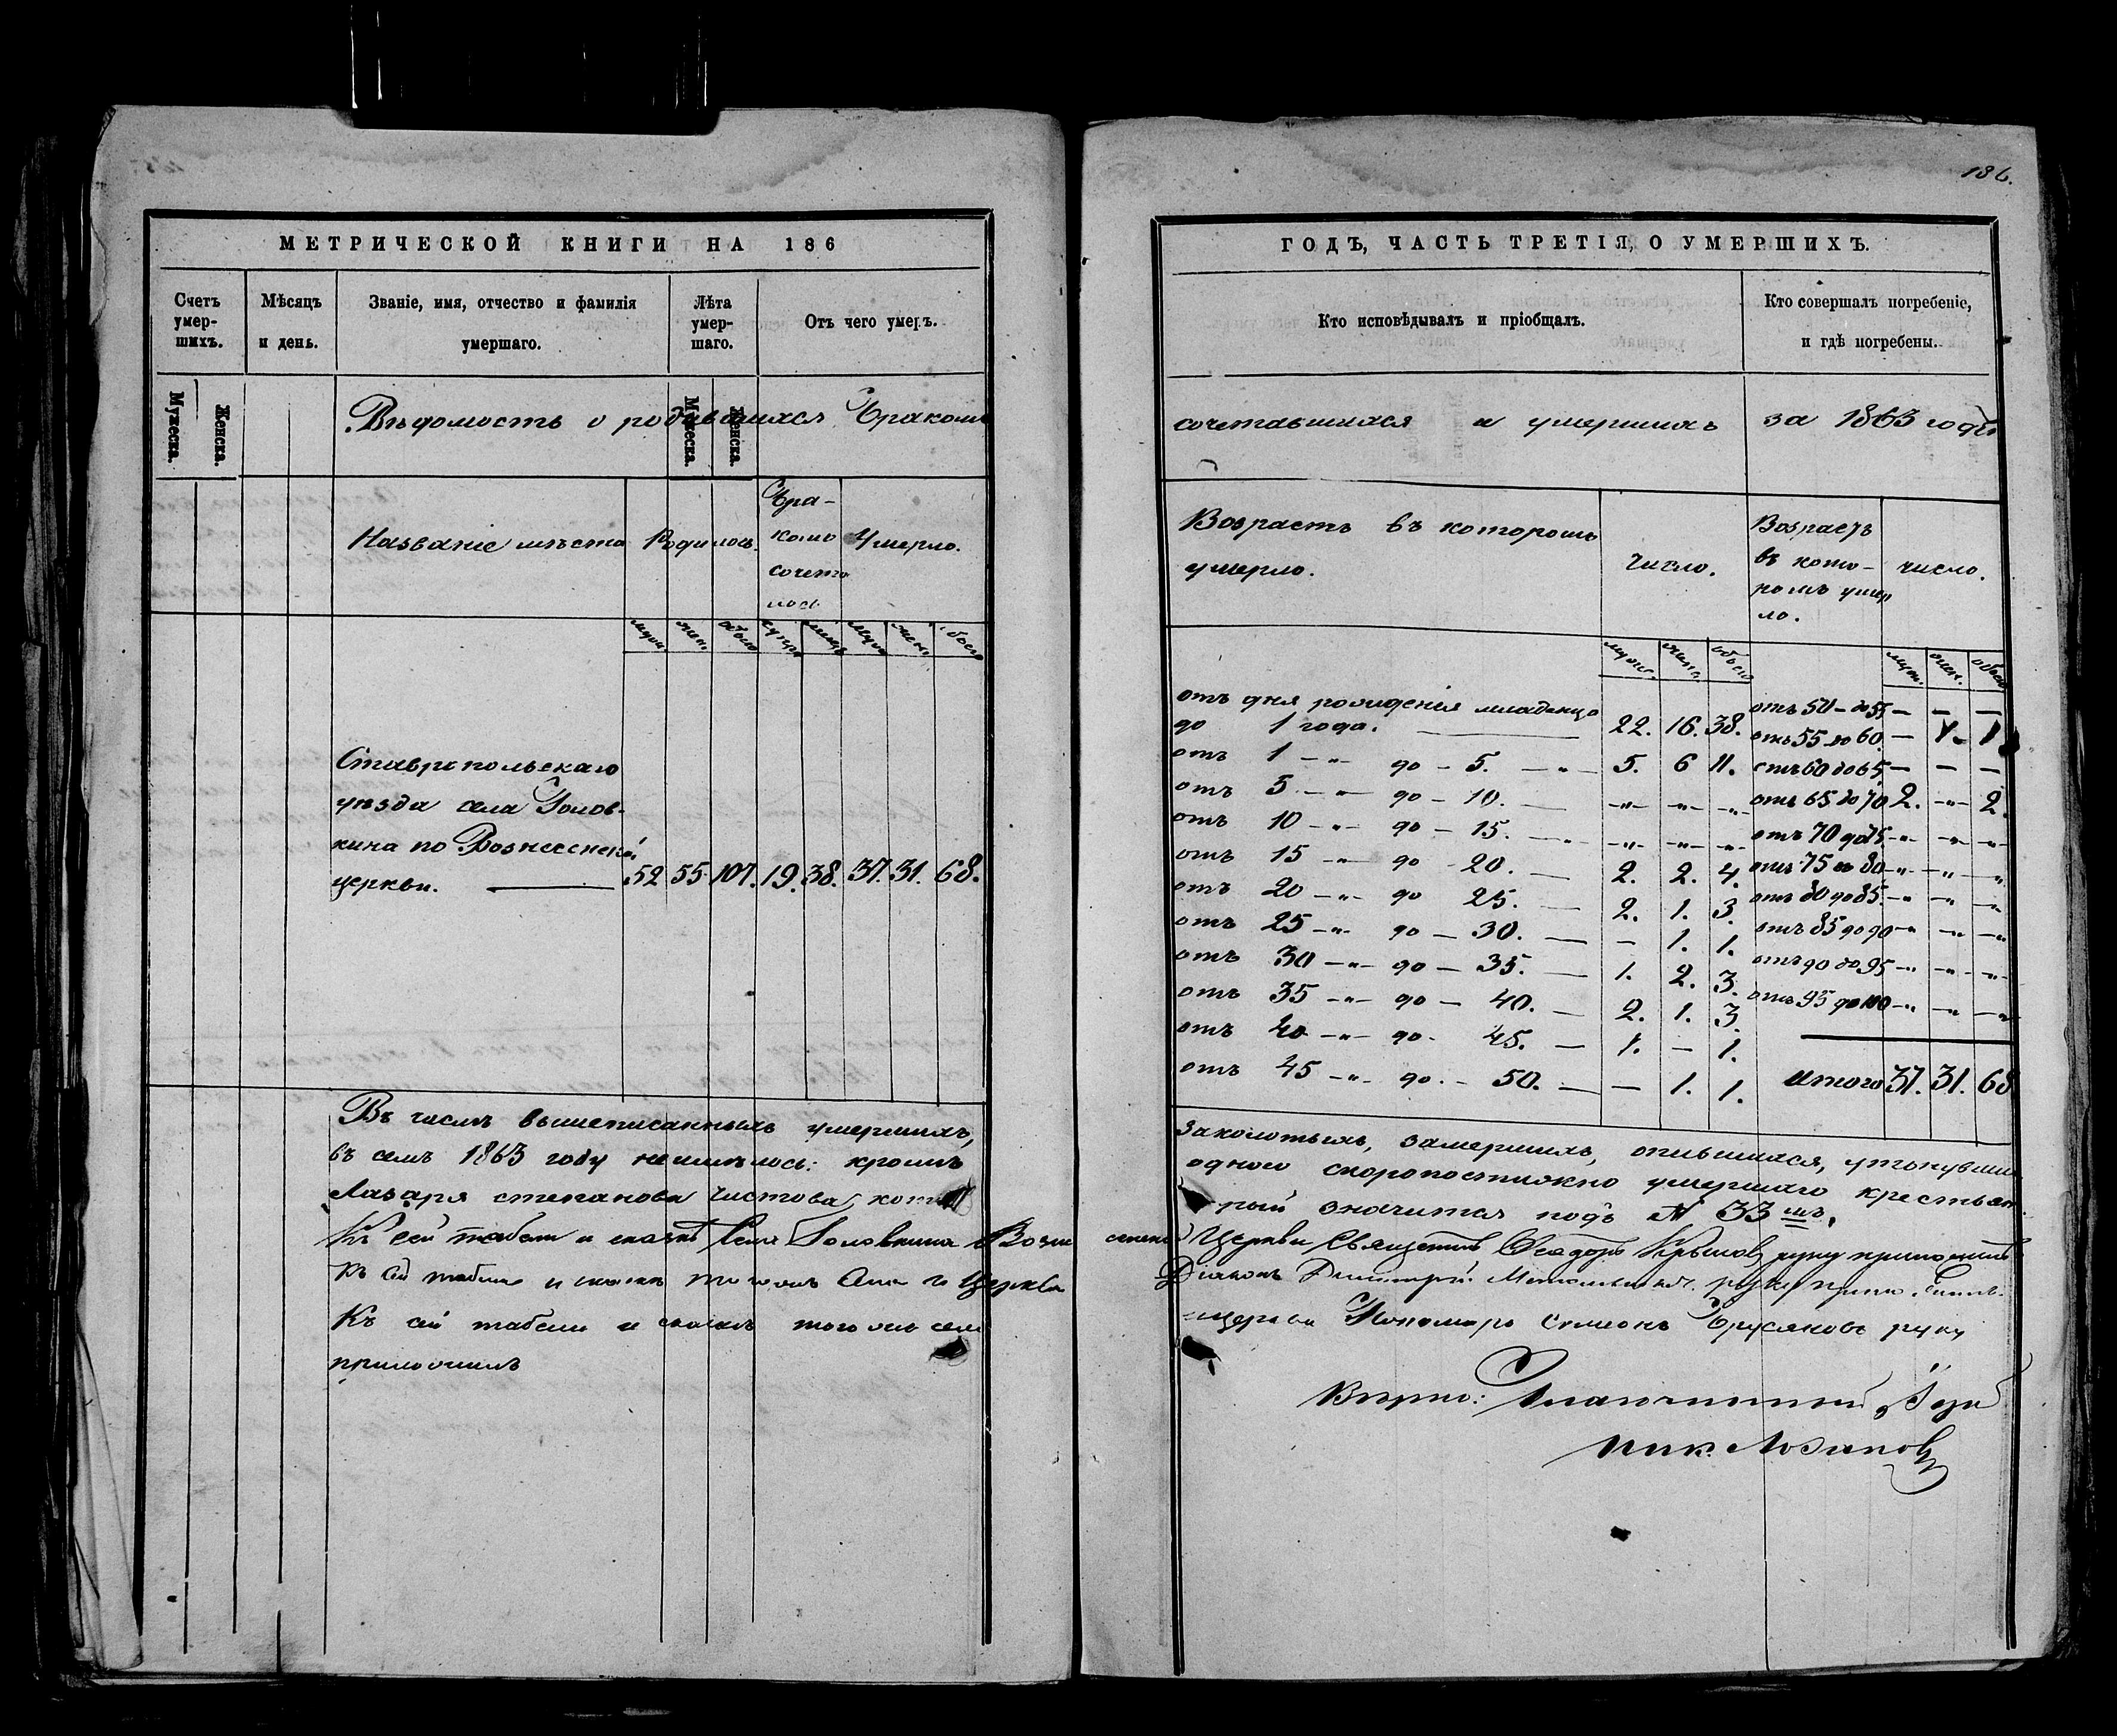 186.
МЕТРИЧЕСКОЙ КНИГИ НА 186
Счетъ умер-шихъ.
Мѣсяцъ и день.
Званіе, имя, отчество и фамилія умершаго.
Лѣта умер-шаго.
Отъ чего умеръ.
Мужеска.
Женска.
Мужеска.
Женска.
Вѣдомость о родившихся, бракомъ
Названіе мѣста
Родилось.
Бра-
комъ
сочета
лось.
Умерло.
муж. жен. обоего супр. лицъ муж. жен. обоего
Ставропольскаго
уѣзда села Голов-
кина по Вознесенской
церкви. 52 55 107. 19. 38. 37. 31. 68.
Въ числѣ вышеписанныхъ умершихъ,
въ семъ 1863 году неимѣлось: кромѣ
Лазаря степанова Чистова, кото
Къ сей табели и сказкѣ села Головкина Возне
Къ сей табели и сказкѣ той же церкви
Къ сей табели и сказкѣ того же села
приложилъ
ГОДЪ, ЧАСТЬ ТРЕТІЯ, О УМЕРШИХЪ.
Кто исповѣдывалъ и пріобщалъ.
Кто совершалъ погребеніе, и гдѣ погребены.
сочетавшихся и умершихъ за 1863 годъ
Возрастъ въ которомъ
умерло.
Число.
Возрастъ
въ кото-
ромъ умер
ло.
число.
муж. жен. обоего муж. жен. обоего
отъ дня рожденія младенца
до 1 года. 22. 16. 38.
отъ 1 —„— до — 5. —„— 5. 6 11.
отъ 5 —„— до — 10. — —„— —„— —„—
отъ 10 —„— до — 15. —„— —„— —„— —„—
отъ 15 —„— до 20. — 2. 2. 4.
отъ 20 —„— до 25. — 2. 1. 3.
отъ 25 —„— до — 30. — — 1. 1.
отъ 30 —„— до — 35. — 1. 2. 3.
отъ 35 —„— до — 40. — 2. 1. 3.
отъ 40 —„— до - 45. — 1. — 1.
отъ 45 —„— до - 50. — — 1. 1.
отъ 50 — до 55 — — —
отъ 55 до 60. — 1. 1
отъ 60 до 65 — — —
отъ 65 до 70 2. —„— 2.
отъ 70 до 75 —„— —„— —„—
отъ 75 до 80 —„— —„— —„—
отъ 80 до 85. —„— —„— —„—
отъ 85 до 90 —„— —„— —„—
отъ 90 до 95 —„— —„— —„—
отъ 95 до 100 —„— —„— —„—
итого 37. 31. 68
заколотыхъ, замершихъ, опившихся, утонувших
одного скоропостижно умершаго крестьян.
рый значится подъ № 33мъ.
сенской Церкви Священникъ Ѳеодоръ Крыловъ руку приложилъ
Діаконъ Димитрій руку приложилъ.
церкви Пономарь Симеонъ Брусяновъ руку
Вѣрно: Благочинный,